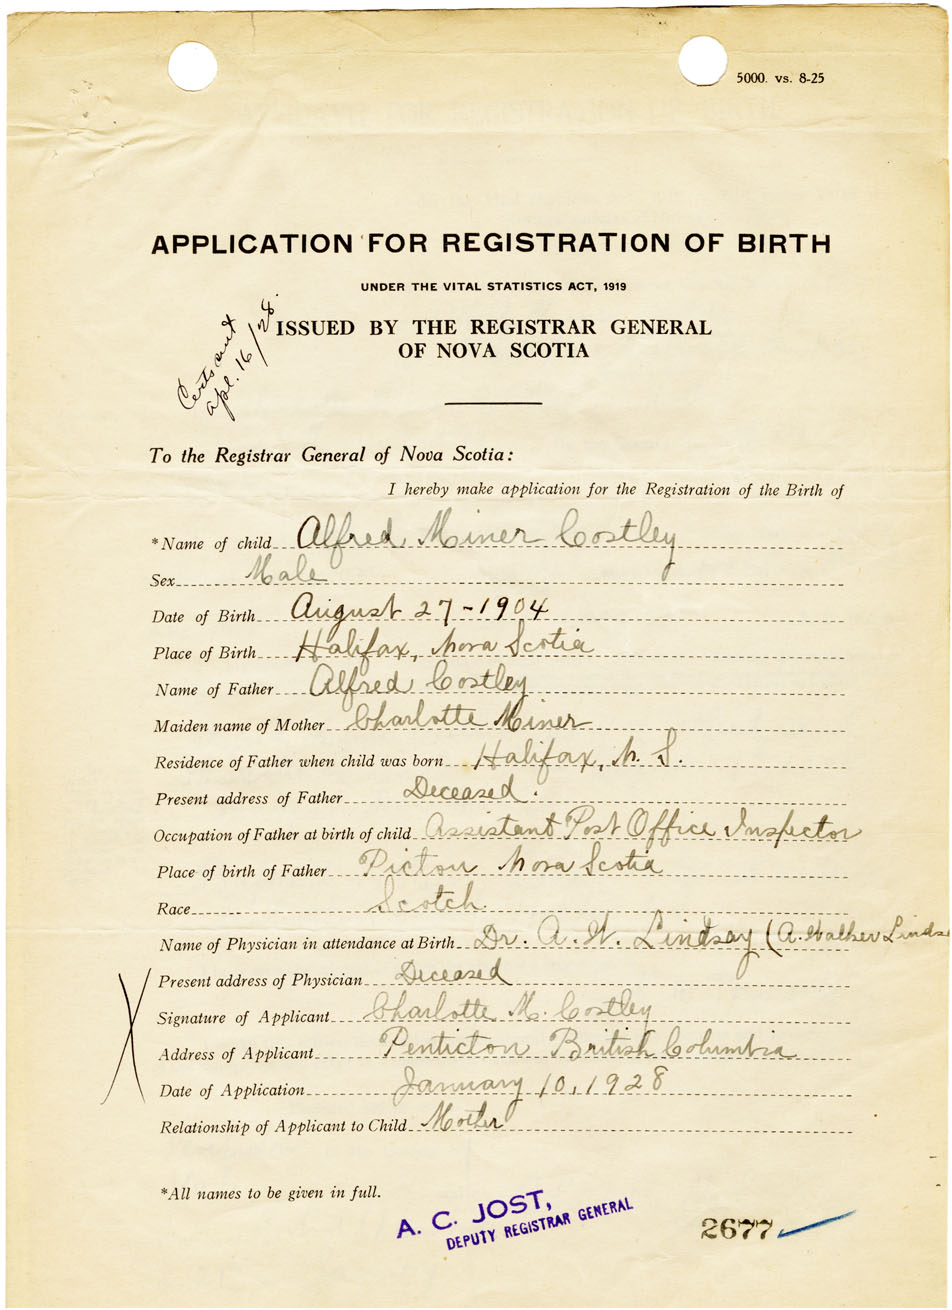 5000. vs. 8-25
APPLICATION FOR REGISTRATION OF BIRTH
UNDER THE VITAL STATISTICS ACT, 1919
Cert sent
Apl. 16/28.
ISSUED BY THE REGISTRAR GENERAL
OF NOVA SCOTIA
To the Registrar General of Nova Scotia:
I hereby make application for the Registration of the Birth of
*Name of child Alfred Miner Costley
Sex Male
Date of Birth August 27-1904
Place of Birth Halifax, Nova Scotia
Name of Father Alfred Costley
Maiden name of Mother Charlotte Miner
Residence of Father when child was born Halifax, N. S.
Present address of Father Deceased.
Occupation of Father at birth of child Assistant Post Office Inspector
Place of birth of Father Pictou Nova Scotia
Race Scotch.
Name of Physician in attendance at Birth Dr. A. W. Lindsay (A. Walker Linds
Present address of Physician Deceased
X Signature of Applicant Charlotte M. Costley
Address of Applicant Penticton British Columbia
Date of Application January 10, 1928
Relationship of Applicant to Child Mother
*All names to be given in full.
A. C. JOST,
DEPUTY REGISTRAR GENERAL
2677